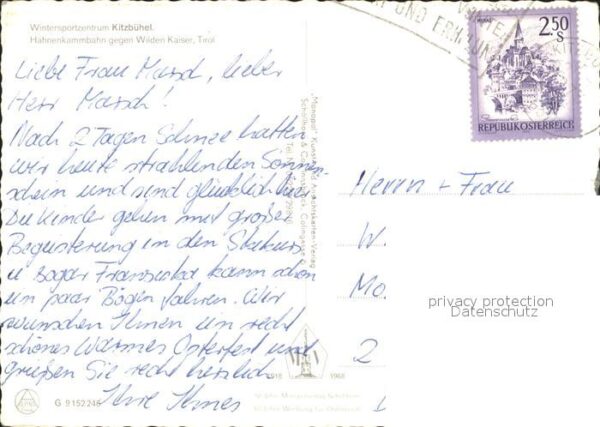 Wintersportzentrum Kitzbühel.
Hahnenkammbahn gegen Wilden Kaiser, Tirol
Liebe Frau Marsch, lieber
Herr Marsch!
Nach 2 Tagen Schnee hatten
wir heute strahlenden Sonnen-
schein und sind glücklich hier
Die Kinder gehen mit großer
Begeisterung in den Skikurs
u sogar Franziska kann schon
ein paar Bögen fahren. Wir
wünschen Ihnen ein recht
schönes warmes Osterfest und
grüßen Sie recht herzlich
Ihre
G 9152248
1918 1968
"Monopol" Kunst- und Ansichtskarten-Verlag
2.50
S
REPUBLIK ÖSTERREICH
Herrn + Frau
W.
Mo.
2
privacy protection
Datenschutz